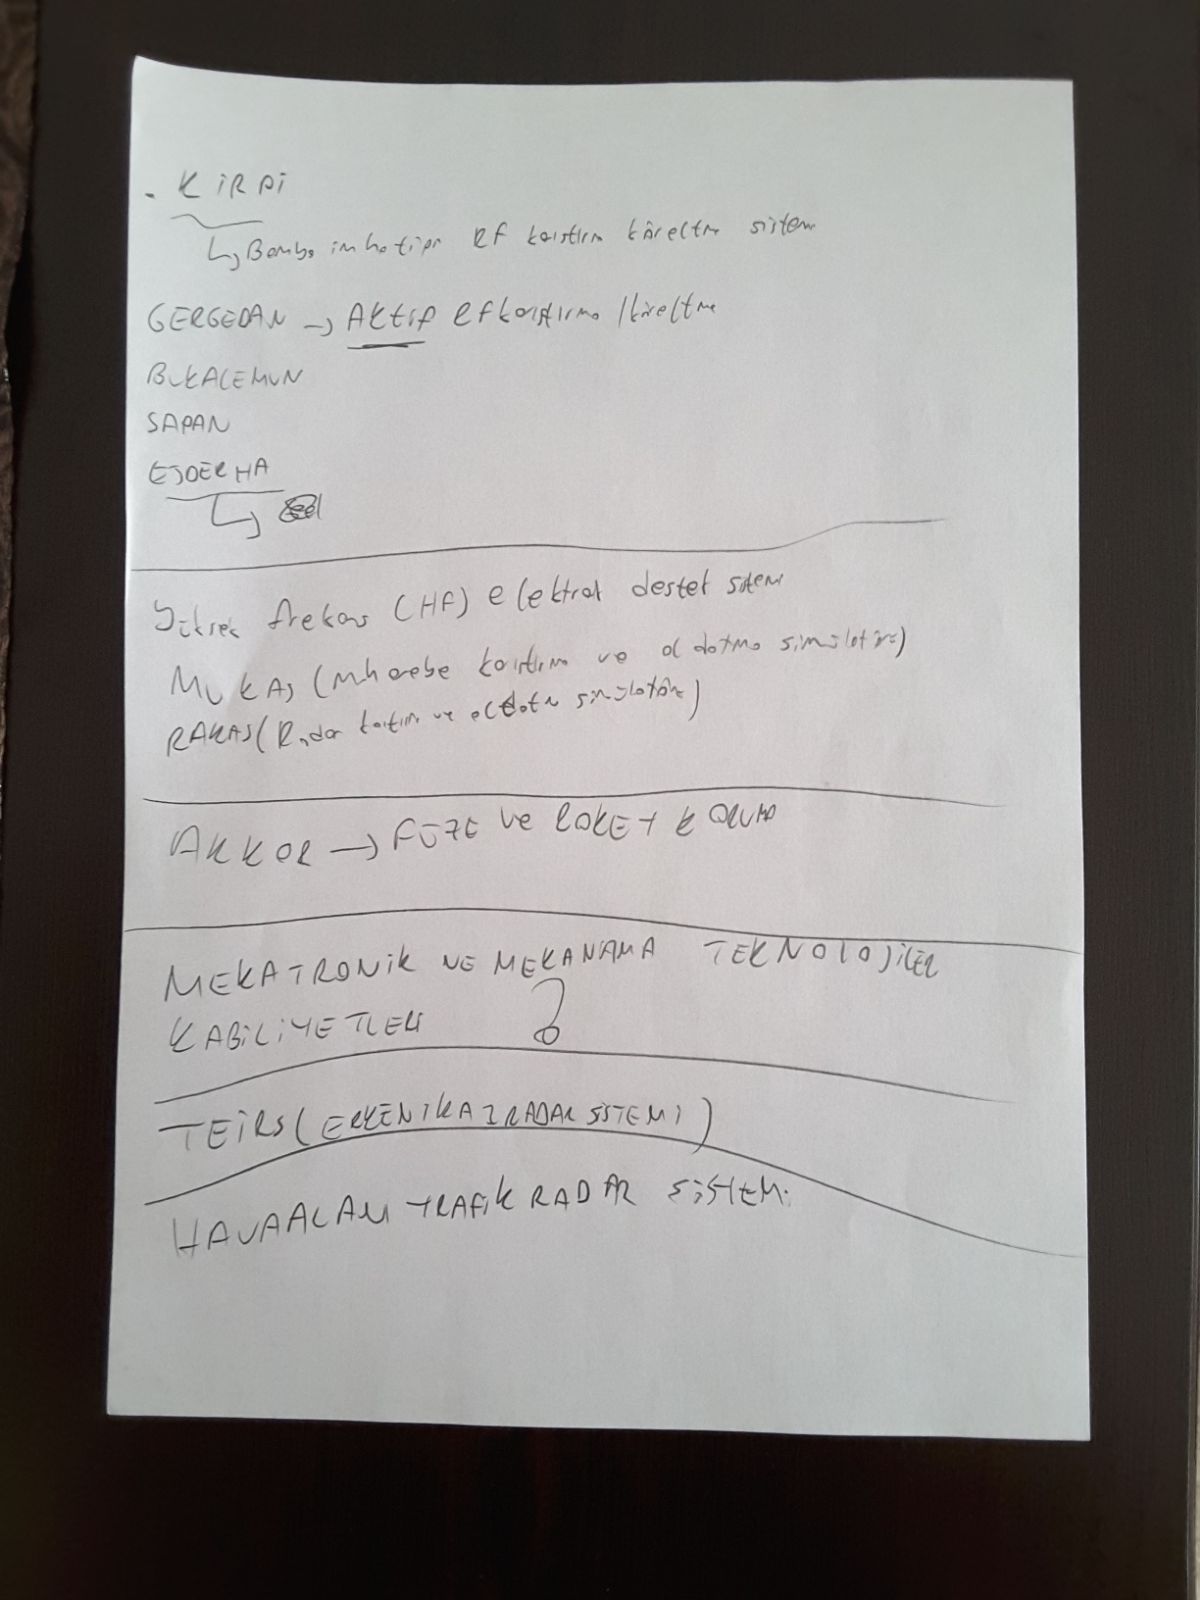 - KİRPİ
↳ Bomba imha tipi RF karıştırma köreltme sistem
GERGEDAN → AKTİF RF karıştırma / köreltme
BUKALEMUN
SAPAN
EJDERHA
Yüksek frekans (HF) elektrok destek sistemi
MUKAS (muharebe karıştırma ve aldatma simülatörü)
RAKAS (Radar karıştırma ve aldatma simülatörü)
AKKOR → FÜZE ve ROKET KORUMA
MEKATRONİK VE MEKANAMA TEKNOLOJİLER
KABİLİYETLERİ ?
TEİRS (ERKEN İKAZ RADAR SİSTEMİ)
HAVAALANI TRAFİK RADAR SİSTEMİ